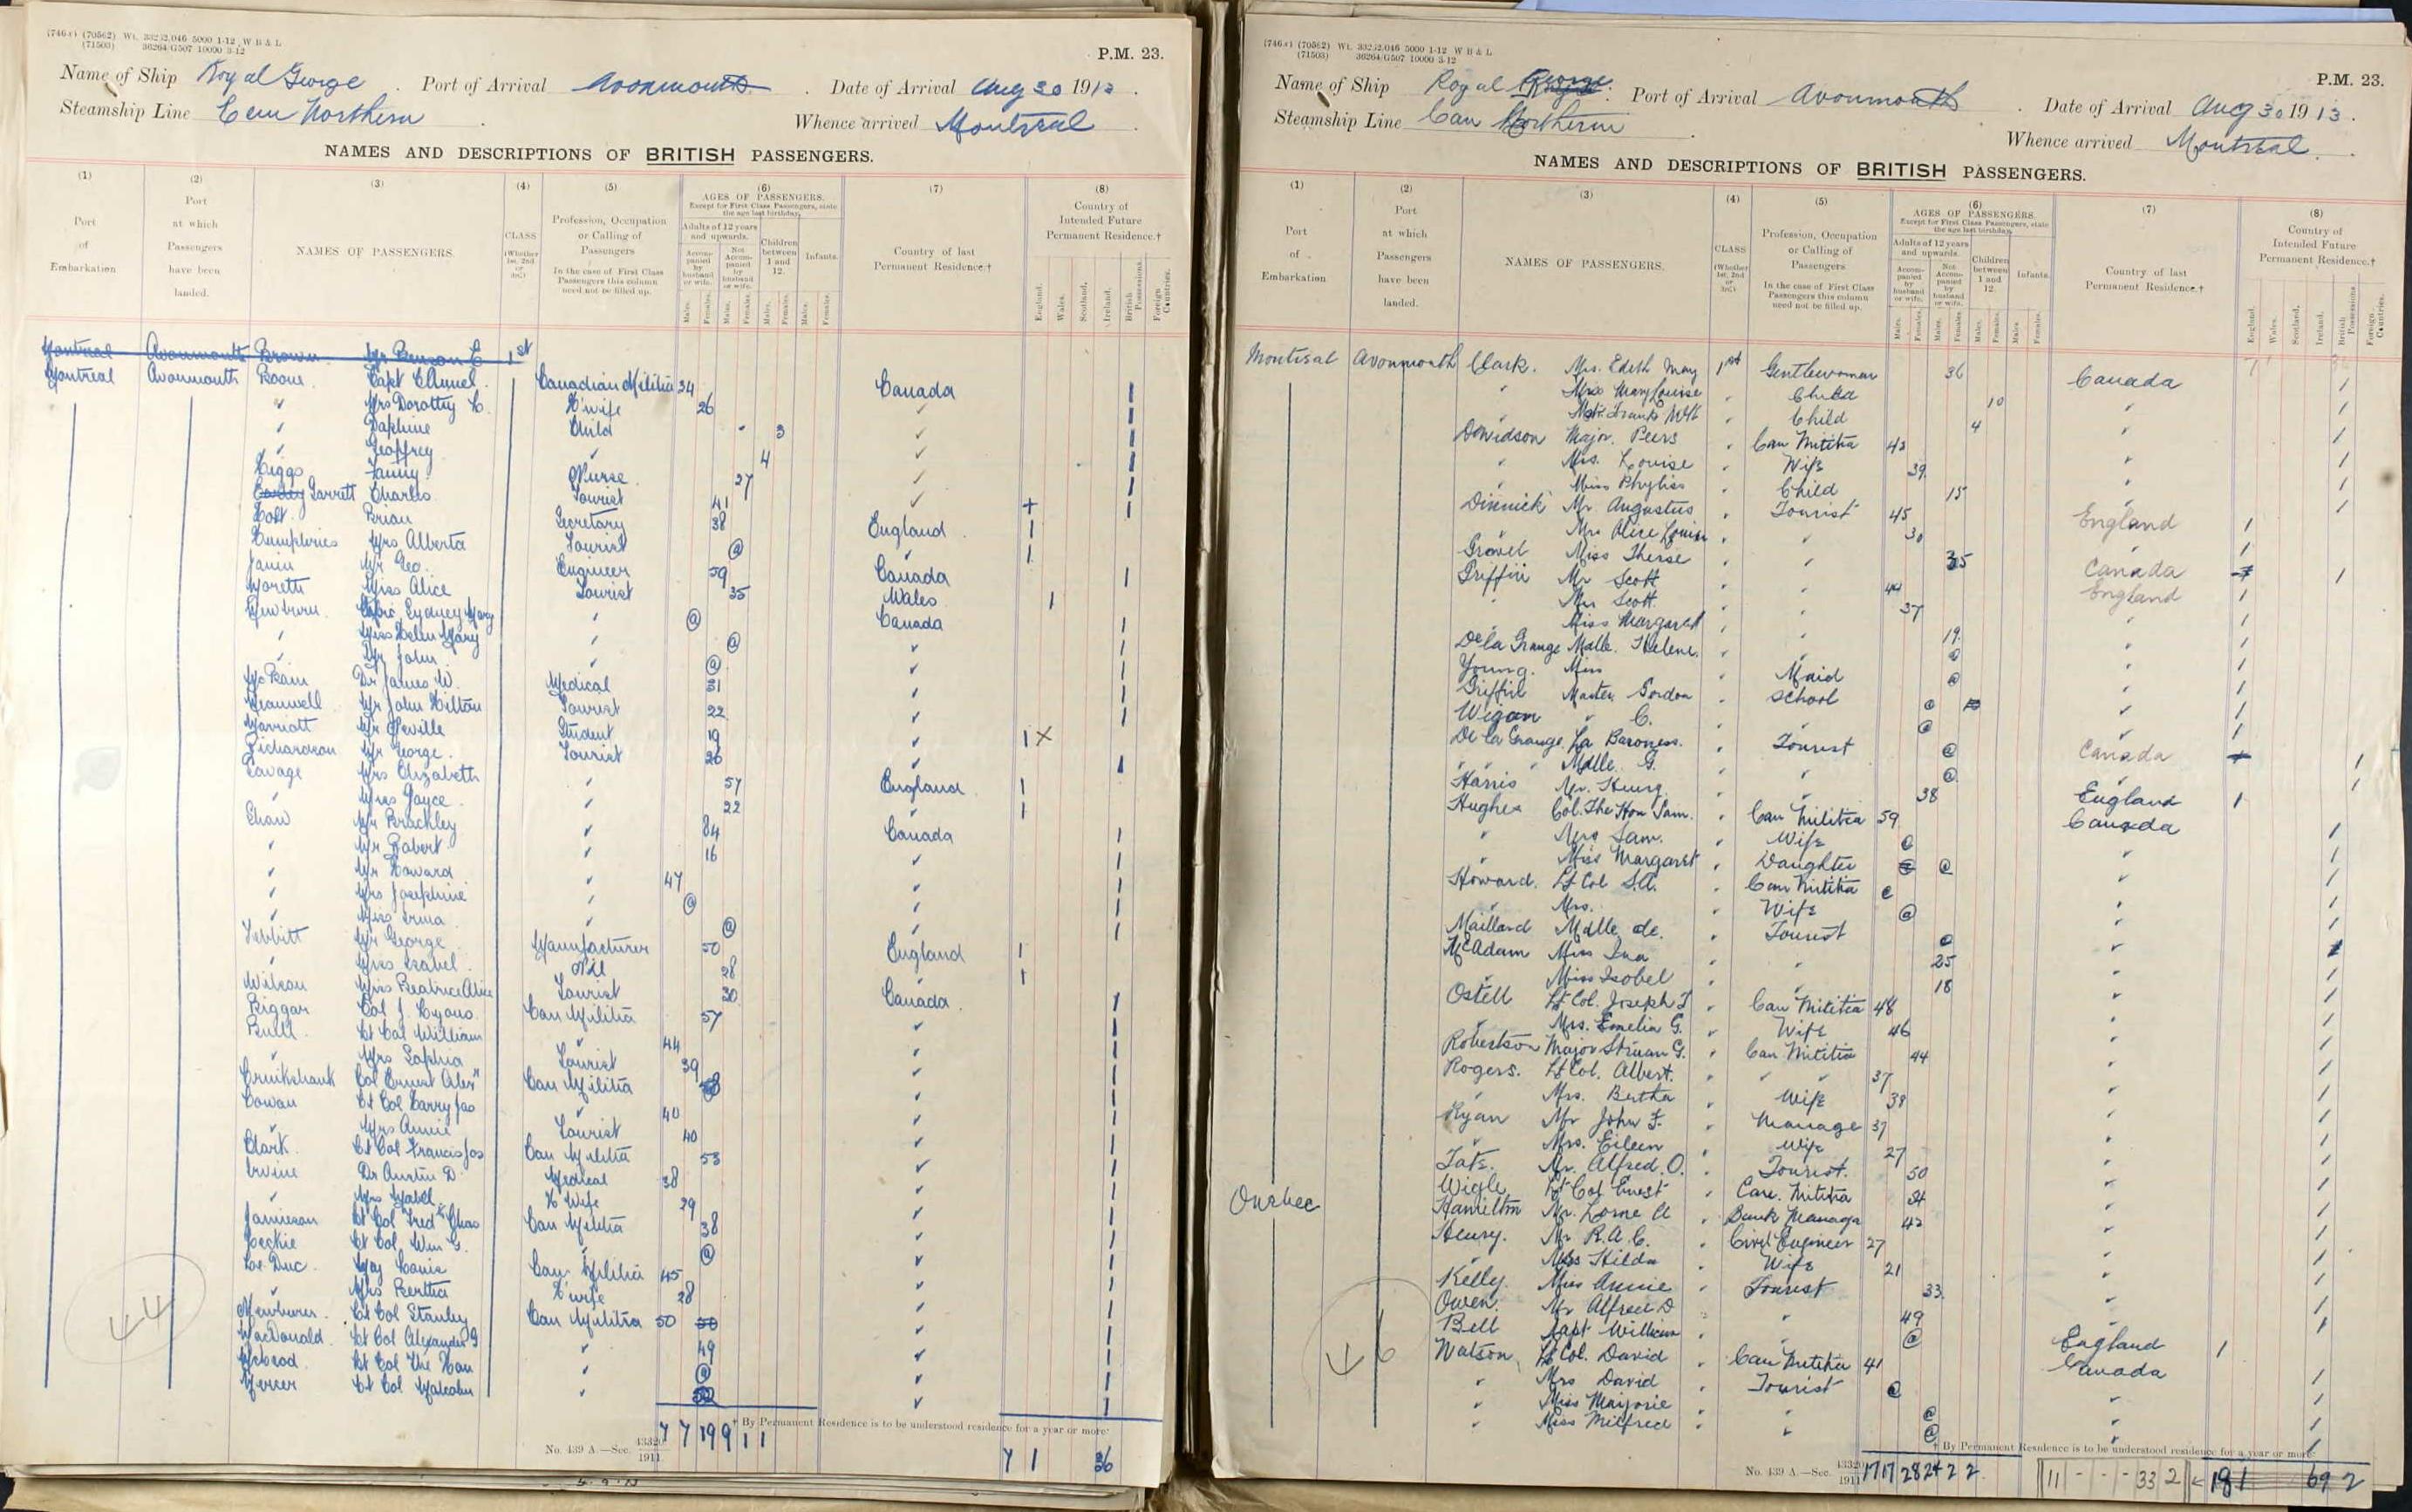 (746A) (70562) Wt. 33252.046 5000 1-12 W B & L
(71503) 36264/G507 10000 3-12
P.M. 23.
Name of Ship Royal George. Port of Arrival Avonmouth. Date of Arrival Aug 30 1913.
Steamship Line Can Northern. Whence arrived Montreal.
NAMES AND DESCRIPTIONS OF BRITISH PASSENGERS.
(1) (2) (3) (4) (5) (6) (7) (8)
Port of Embarkation
Port at which Passengers have been landed.
NAMES OF PASSENGERS.
CLASS (Whether 1st, 2nd or 3rd.)
Profession, Occupation or Calling of Passengers
In the case of First Class Passengers this column need not be filled up.
AGES OF PASSENGERS.
Except for First Class Passengers, state the age last birthday.
Adults of 12 years and upwards.
Accompanied by husband or wife.
Not Accompanied by husband or wife.
Children between 1 and 12.
Infants.
Males. Females. Males. Females. Males. Females. Males. Females.
Country of last Permanent Residence.†
Country of Intended Future Permanent Residence.†
England. Wales. Scotland. Ireland. British Possessions. Foreign Countries.
Montreal Avonmouth Brown Mr Benson C 1st
Montreal Avonmouth Boone Capt Canadian Militia 34 Canada 1
" Mrs Dorothy C. H'wife 26 ✓ 1
" Daphine Child 3 ✓ 1
" Geoffrey " 4 ✓ 1
Higgs Fanny Nurse 27 ✓ 1
Garrett Charles Tourist 41 ✓ + 1
Holt Brian Secretary 38 England 1
Humphries Mrs Alberta Tourist @ " 1
Janin Mr Geo. Engineer 59 Canada 1
Moretti Miss Alice Tourist 35 Wales 1
Sydney Mary " @ Canada 1
" Miss Helen Mary " @ ✓ 1
" Mr John " @ ✓ 1
Dr James W. Medical 31 ✓ 1
Mr John Hilton Tourist 22 ✓ 1
Marriott Mr Neville Student 19 ✓ 1 X
Richardson Mr George Tourist 26 ✓ 1
Savage Mrs Elizabeth " 57 England 1
" Miss Joyce " 22 1
Shaw Mr Brackley " 84 Canada 1
" Mr Robert " 16 " 1
" Mr Howard " 47 " 1
" Mrs Josephine " @ " 1
" Miss Irma " @ " 1
Tebbitt Mr George Manufacturer 50 England 1
" Miss Isabel Nil 28 1
Wilson Miss Beatrice Alice Tourist 30 Canada 1
Biggar Col J. Lyons Can Militia 57 ✓ 1
Buell Lt Col William " 44 ✓ 1
" Mrs Sophia Tourist 39 ✓ 1
Cruikshank Col Ernest Alex Can Militia ✓ 1
Cowan Lt Col Harry Jas " 40 ✓ 1
" Mrs Annie Tourist 40 ✓ 1
Clark Lt Col Francis Jas Can Militia 53 ✓ 1
Irvine Dr Austin D. Medical 38 ✓ 1
" Mrs Mabel H Wife 29 ✓ 1
Jamieson Lt Col Fredk Chas Can Militia 38 ✓ 1
Leckie Lt Col Wm G. " @ ✓ 1
Le Duc Maj Louis Can Militia 45 ✓ 1
" Mrs Bertha H'wife 28 ✓ 1
Lt Col Stanley Can Militia 50 50 ✓ 1
MacDonald Lt Col Alexander G " 49 ✓ 1
McLeod Lt Col The Hon " @ ✓ 1
Mercer Lt Col Malcolm " 52 ✓ 1
44
† By Permanent Residence is to be understood residence for a year or more.
No. 439 A.—Sec. 43320/1911
7 7 19 9 1 1
7 1 36
(746A) (70562) Wt. 33252.046 5000 1-12 W B & L
(71503) 36264/G507 10000 3-12
P.M. 23.
Name of Ship Royal George. Port of Arrival Avonmouth. Date of Arrival Aug 30 1913.
Steamship Line Can Northern. Whence arrived Montreal.
NAMES AND DESCRIPTIONS OF BRITISH PASSENGERS.
(1) (2) (3) (4) (5) (6) (7) (8)
Port of Embarkation
Port at which Passengers have been landed.
NAMES OF PASSENGERS.
CLASS (Whether 1st, 2nd or 3rd.)
Profession, Occupation or Calling of Passengers
In the case of First Class Passengers this column need not be filled up.
AGES OF PASSENGERS.
Except for First Class Passengers, state the age last birthday.
Adults of 12 years and upwards.
Accompanied by husband or wife.
Not Accompanied by husband or wife.
Children between 1 and 12.
Infants.
Males. Females. Males. Females. Males. Females. Males. Females.
Country of last Permanent Residence.†
Country of Intended Future Permanent Residence.†
England. Wales. Scotland. Ireland. British Possessions. Foreign Countries.
Montreal Avonmouth Clark. Mrs. Edith May 1st Gentlewoman 36 Canada 1
" Miss Mary Louise " Child 10 " 1
" Mstr. Frank " Child 4 " 1
Davidson Major. Peers " Can Militia 43 " 1
" Mrs. Louise " Wife 39 " 1
" Miss Phyliss " Child 15 " 1
Dinnick Mr. Augustus " Tourist 45 England 1
" Mrs Alice Louise " " 30 " 1
Gravel Miss Therese " " 35 Canada 1
Griffin Mr Scott " " 44 England 1
" Mrs Scott " " 37 " 1
" Miss Margaret " " 19 " 1
De la Grange Malle. Helene. " " @ " 1
Young. Miss " Maid @ " 1
Griffin Master Gordon " School @ " 1
Wigan " C. " " @ " 1
De la Grange La Baroness. " Tourist @ Canada 1
" Malle G. " " @ 1
Harris Mr. Henry. " " 38 England 1
Hughes Col. The Hon Sam. " Can Militia 59 Canada 1
" Mrs Sam. " Wife @ " 1
" Miss Margaret " Daughter @ " 1
Howard. Lt Col S.A. " Can Militia @ " 1
" Mrs. " Wife @ " 1
Maillard Malle de. " Tourist @ " 1
McAdam Miss Ina " " 25 " 1
" Miss Isobel " " 18 " 1
Ostell Lt Col. Joseph T " Can Militia 48 " 1
" Mrs. Emelia G. " Wife 46 " 1
Robertson Major Struan G. " Can Militia 44 " 1
Rogers. Lt Col. Albert. " " 37 " 1
" Mrs. Bertha " Wife 38 " 1
Ryan Mr John F. " Manager 37 " 1
" Mrs. Eileen " Wife 27 " 1
Tate. Mr. Alfred. O. " Tourist. 50 " 1
Wigle Lt Col Ernest " Can. Militia 54 " 1
Quebec Hamilton Mr. Lorne A " Bank Manager 42 " 1
Henry. Mr R.A.C. " Civil Engineer 27 " 1
" Mrs Hilda " Wife 21 " 1
Kelly. Miss Annie " Tourist 33 " 1
Owen. Mr Alfred D " " 49 " 1
Bell Capt William " " @ England 1
Watson. Lt Col. David " Can Militia 41 Canada 1
" Mrs David " Tourist @ " 1
" Miss Marjorie " " @ " 1
" Miss Milfred " " @ " 1
† By Permanent Residence is to be understood residence for a year or more.
No. 439 A.—Sec. 43320/1911
17 17 28 24 2 2
11 - - - 33 2
18 1 69 2